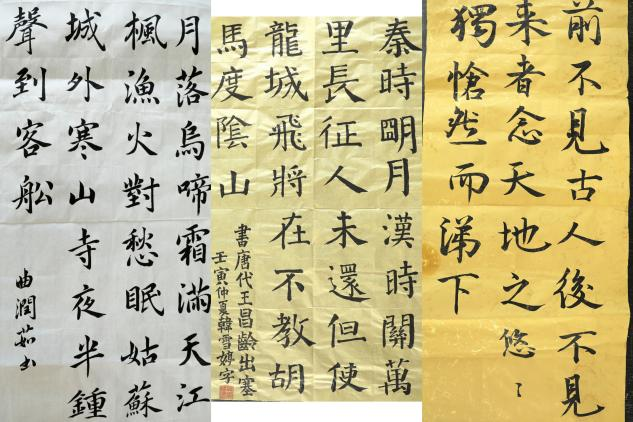 月落烏啼霜滿天江
楓漁火對愁眠姑蘇
城外寒山寺夜半鍾
聲到客舩
曲潤茹书
秦時朙月漢時關萬
里長征人未還但使
龍城飛將在不教胡
馬度陰山
書唐代王昌齡出塞
壬寅仲夏韓雪婷字
前不見古人後不見
来者念天地之悠〻
獨愴然而涕下